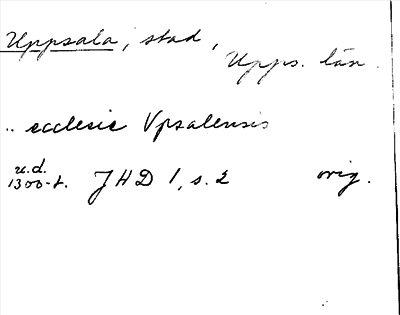 Uppsala, stad,
Upps. län.
.. ecclesie Vpsalensis
u.d.
1300-t. JHD 1, s. 2 orig.